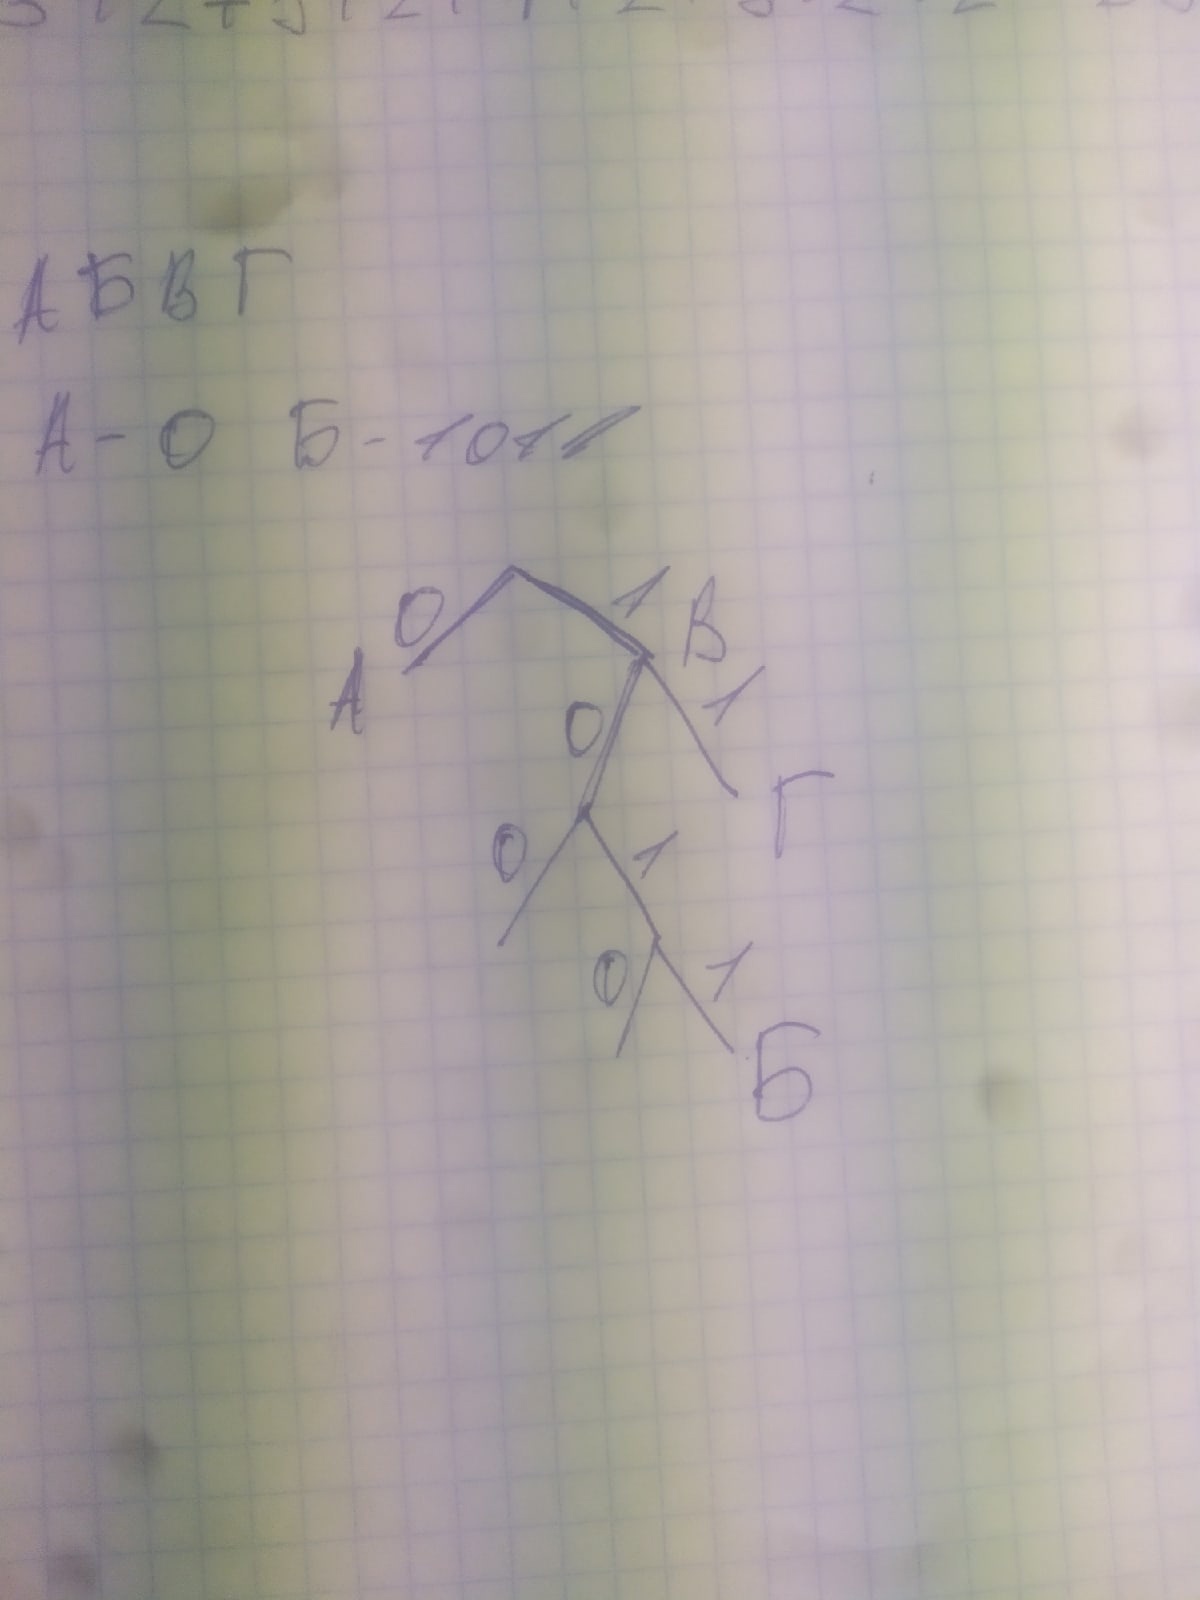 А Б В Г
А - 0 Б - 1011
0 1 В
А 0 1
Г
0 1
0 1
Б